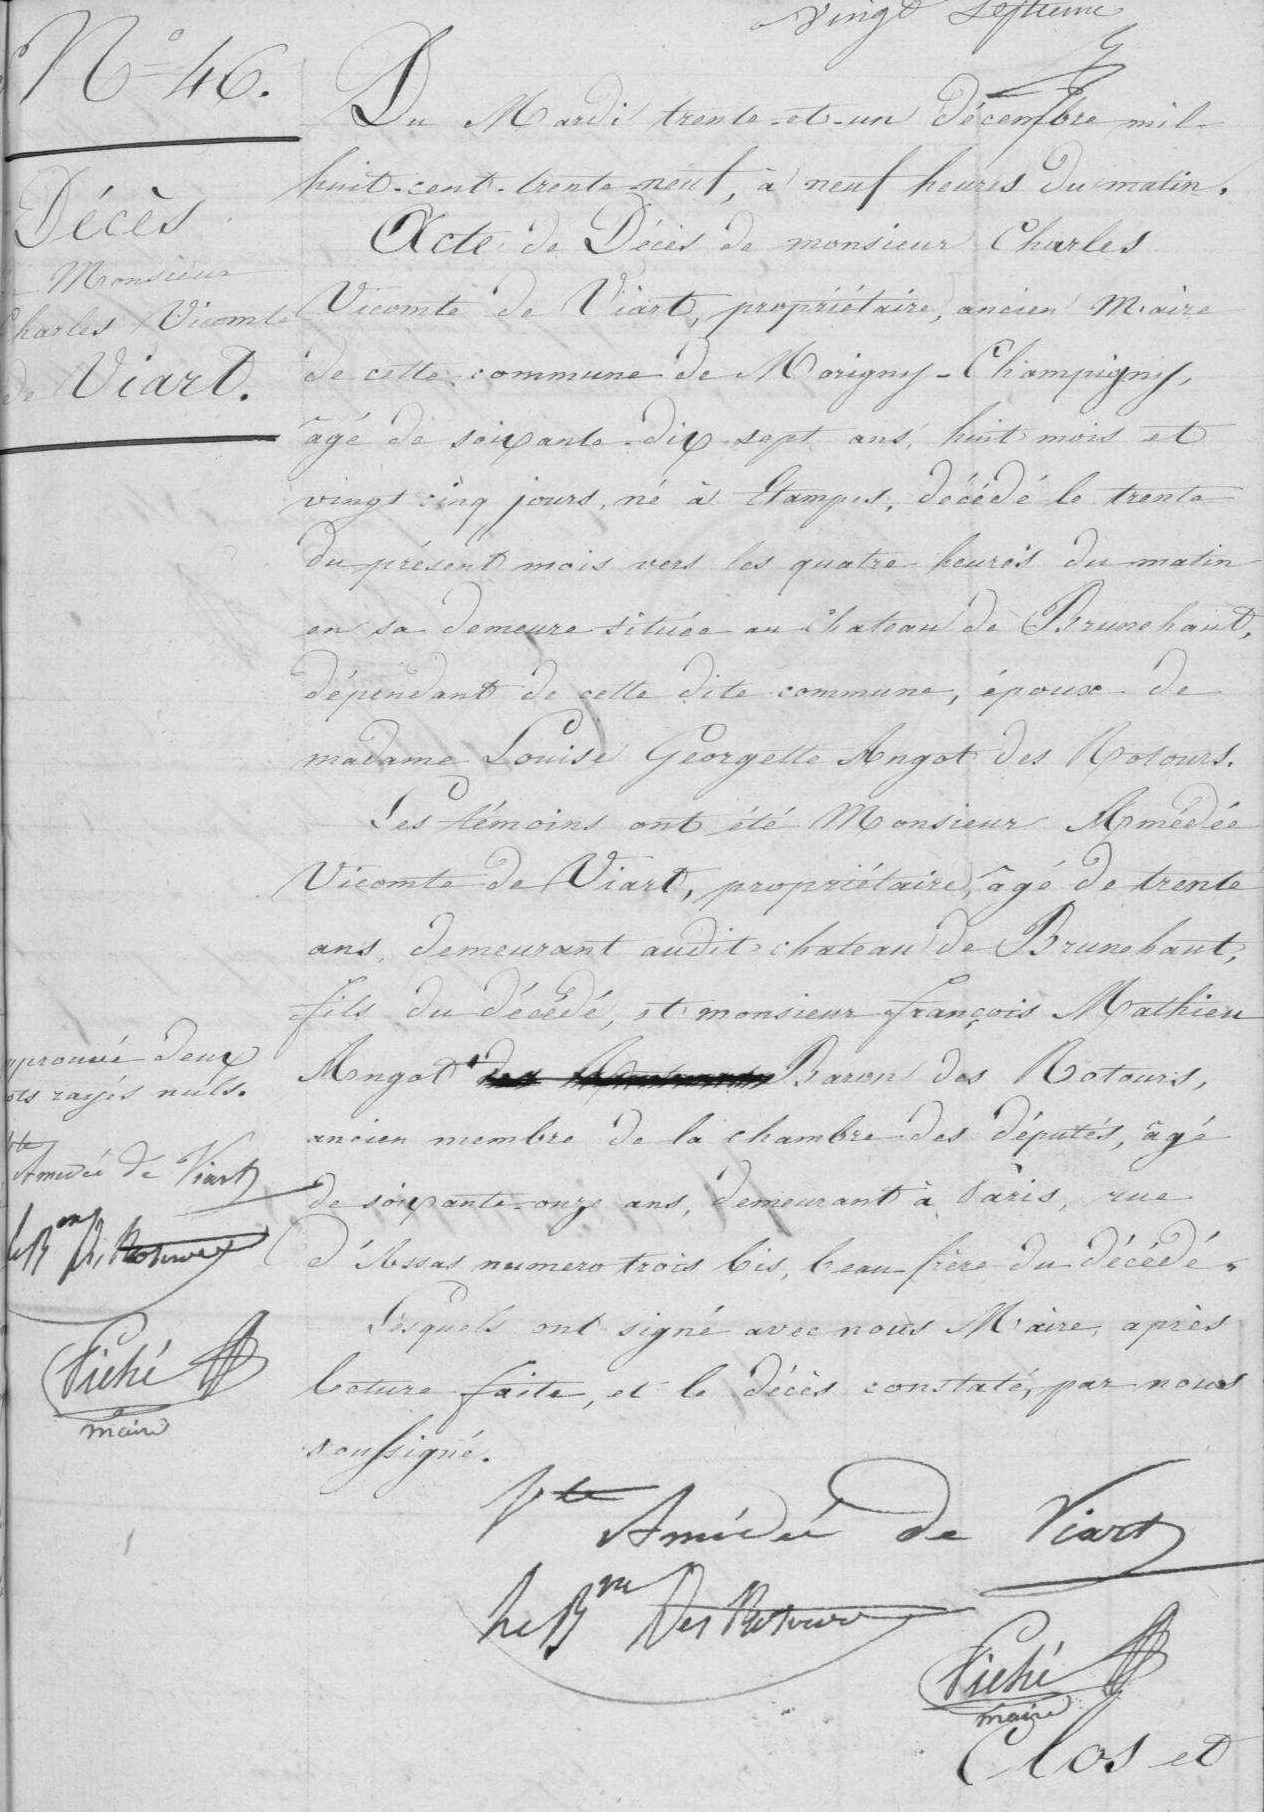 vingt septieme
N° 46.
Décès
Monsieur
Charles Vicomte
de Viart.
Du Mardi trente-et-un décembre mil-
huit-cent-trente-neuf, à neuf heures du matin.
Acte de Décès de monsieur Charles
Vicomte de Viart, propriétaire, ancien Maire
de cette commune de Morigny-Champigny,
âgé de soixante-dix-sept ans, huit mois et
vingt cinq jours, né à Etampes, décédé le trente
du présent mois vers les quatre heures du matin
en sa demeure située au chateau de Brunehaut,
dépendant de cette dite commune, époux de
madame Louise Georgette Angot des Rotours.
Les témoins ont été Monsieur Amédée
Vicomte de Viart, propriétaire, âgé de trente
ans, demeurant audit chateau de Brunehaut,
fils du décédé, et monsieur françois Mathieu
Angot des Rotours Baron des Rotours,
ancien membre de la chambre des députés, âgé
de soixante-onze ans, demeurant à Paris, rue
d'Assas numero trois bis, beau-frère du décédé.
Lesquels ont signé avec nous Maire, après
lecture faite, et le décès constaté, par nous
soussigné.
approuvé deux
mots rayés nuls.
Vte Amédée de Viart
Le Bon des Rotours
Piché
maire
Vte Amédée de Viart
Le Bon Des Rotours
Piché
maire
Clos et